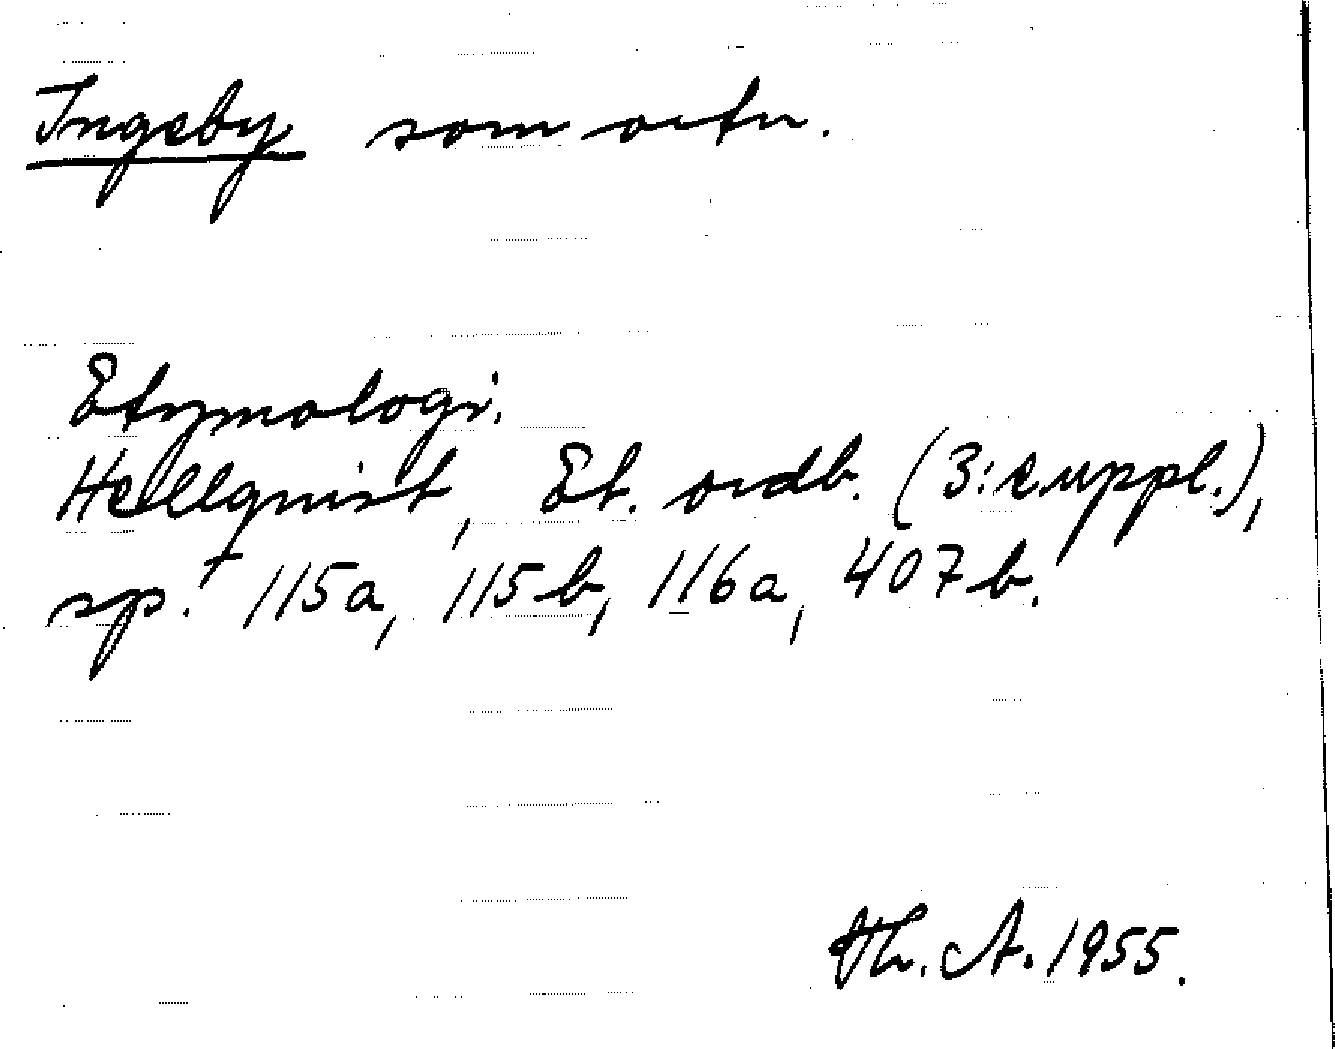 Ingeby som ortn.
Etymologi.
Hellquist, Et. ordb. (3: e uppl.),
sp. 115a, 115b, 116a, 407b.
Th. A. 1955.